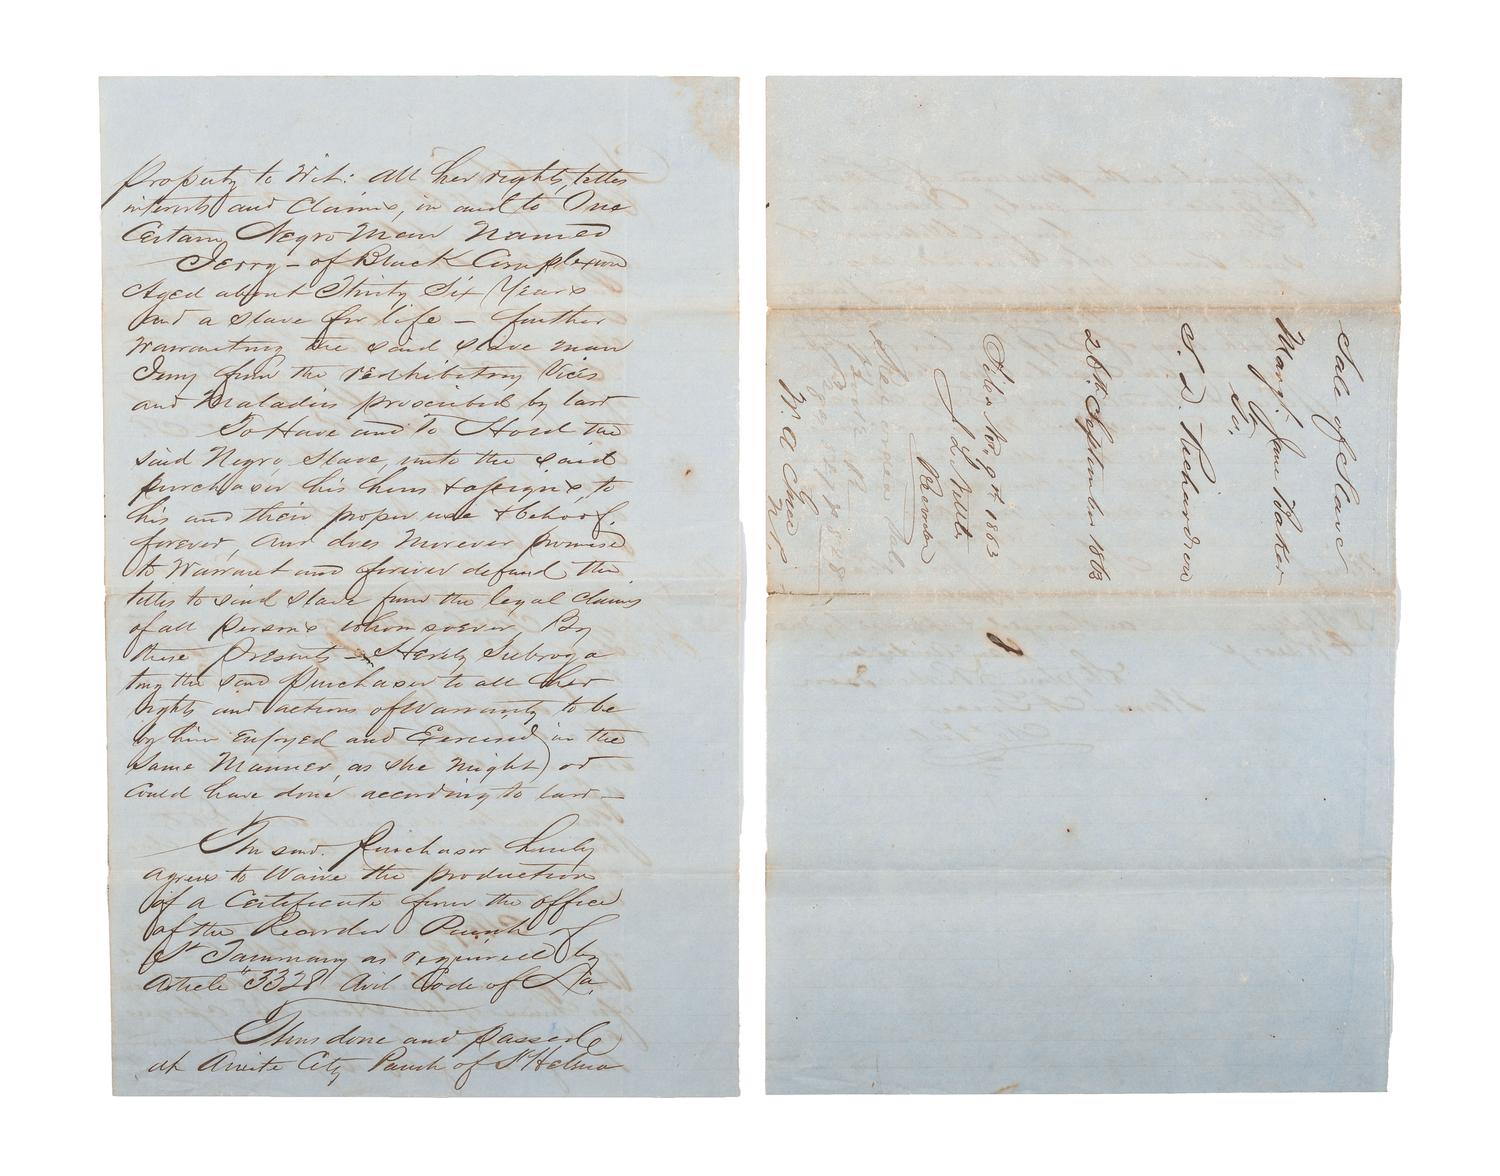 Property to Wit: All her rights, titles
interests and Claims, in and to One
Certain Negro Man Named
Jerry – of Black Complexion
Aged about Thirty Six Years
And a Slave for life – further
Warranting the said slave man
Jerry from the redhibitory Vices
and Maladies proscribed by law
To Have and To Hold the
said Negro Slave, unto the said
purchaser his heirs & assigns, to
his and their proper use & behoof,
forever, And does Moreover promise
to Warrant and forever defend the
titles to said slave from the legal claims
of all persons whomsoever By
these Presents – Hereby Subroga
ting the said Purchaser to all her
rights and actions of Warranty to be
by him Enjoyed and Exercised in the
Same Manner, as she might, or
Could have done according to law –
The said Purchaser hereby
agrees to Waive the production
of a Certificate from the office
of the Recorder Parish of
St Tammany as required by
Article "3328 Civil Code of La.
Thus done and passed
at Amite City Parish of St Helena
Sale of Slave
Mary Jane Baker
To
S. D. Richardson
26th September 1863
Filed Nov. 9th 1863
J L
Recorder